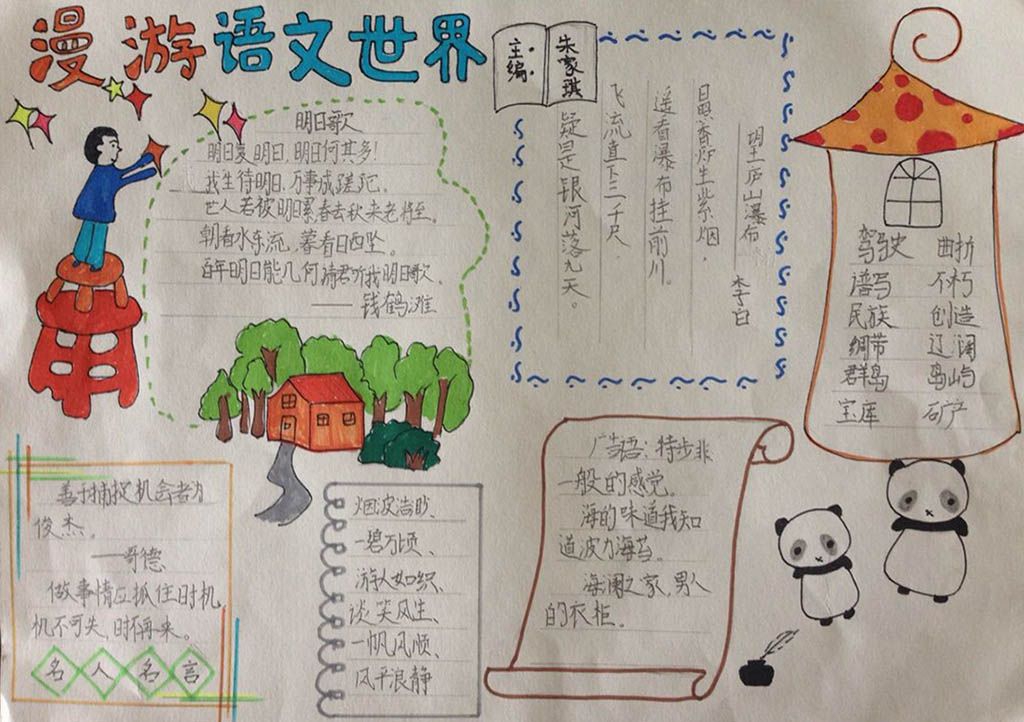 漫游语文世界
主编:
朱家琪
明日歌
明日复明日,明日何其多!
我生待明日,万事成蹉跎。
世人若被明日累,春去秋来老将至。
朝看水东流,暮看日西坠。
百年明日能几何,请君听我明日歌。
——钱鹤滩
望庐山瀑布
李白
日照香炉生紫烟,
遥看瀑布挂前川。
飞流直下三千尺,
疑是银河落九天。
驾驶 曲折
谱写 不朽
民族 创造
绸带 辽阔
群岛 岛屿
宝库 矿产
善于捕捉机会者为
俊杰。
——哥德
做事情应抓住时机,
机不可失,时不再来。
名人名言
烟波浩眇、
一碧万顷、
游人如织、
谈笑风生、
一帆风顺、
风平浪静
广告语:特步非
一般的感觉。
海的味道我知
道波力海苔。
海澜之家,男人
的衣柜。